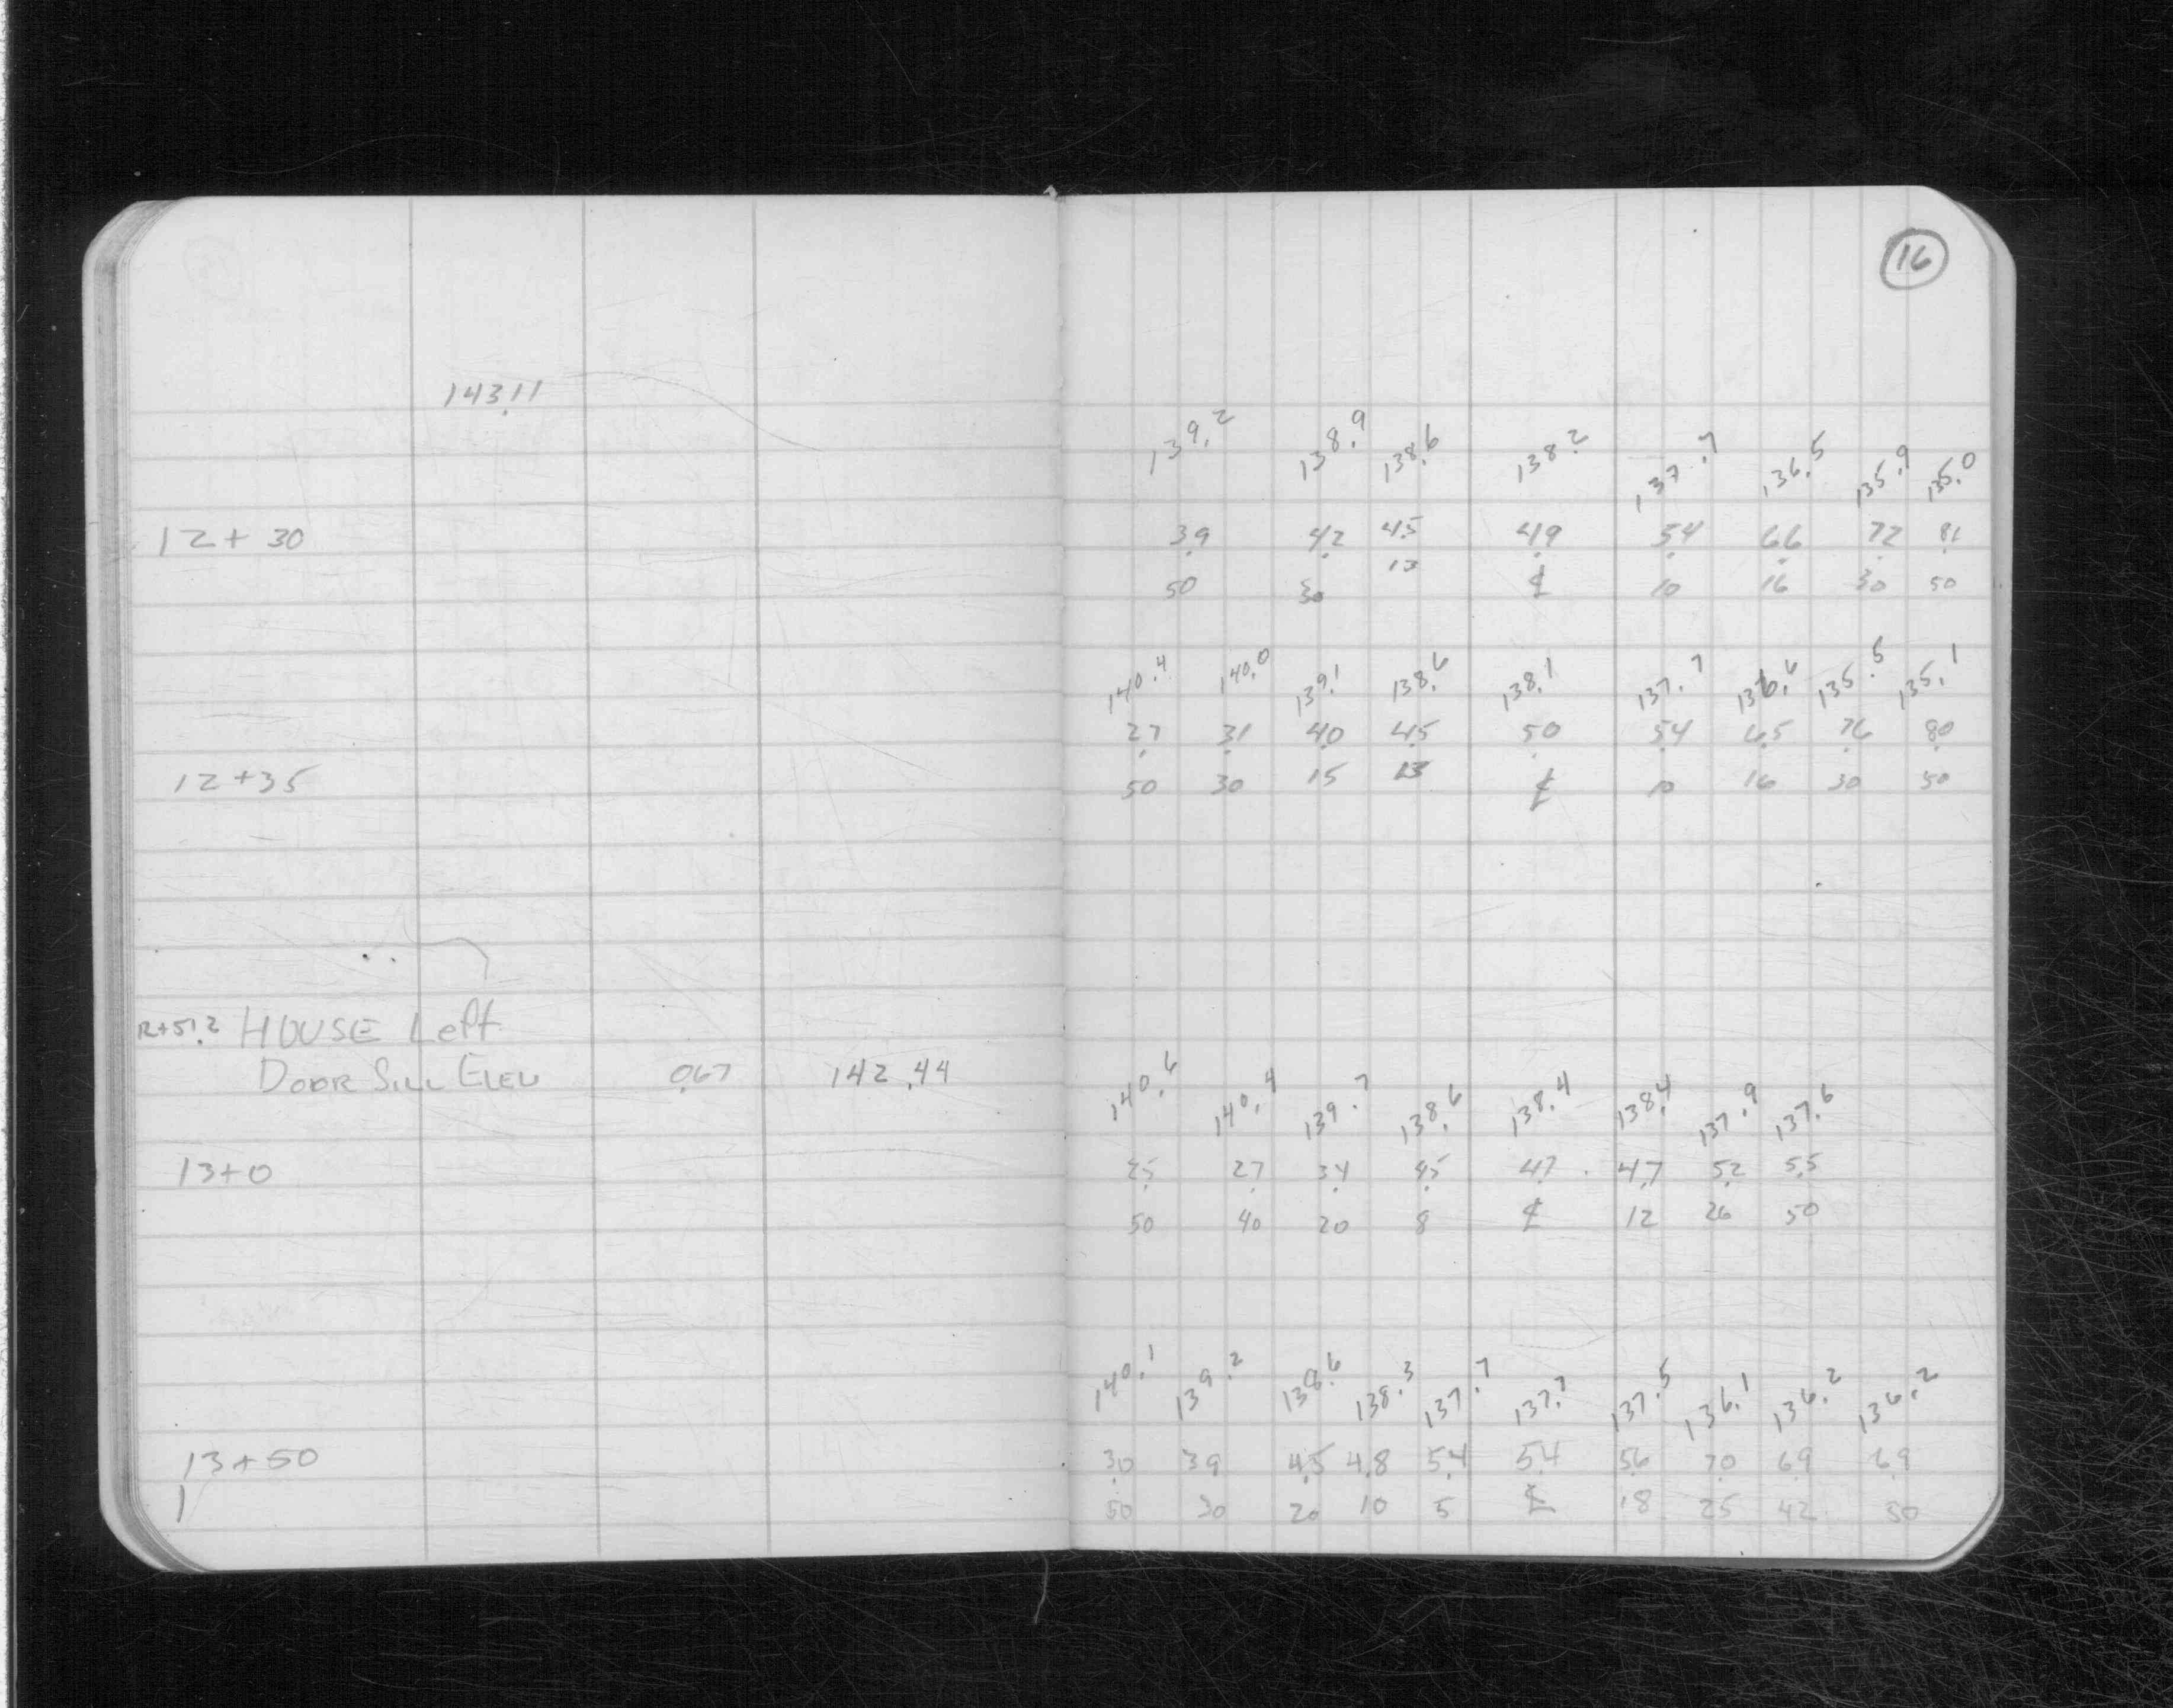 16
143.11
139.2 138.9 138.6 138.2 137.7 136.5 135.9 135.0
12+30 3.9 4.2 4.5 4.9 5.4 6.6 7.2 8.1
50 30 13 ℄ 10 16 30 50
140.4 140.0 139.1 138.6 138.1 137.7 136.6 135.5 135.1
2.7 3.1 4.0 4.5 5.0 5.4 6.5 7.6 8.0
12+35 50 30 15 13 ℄ 10 16 30 50
12+51.2 HOUSE Left
DOOR SILL ELEV 0.67 142.44
140.6 140.4 139.7 138.6 138.4 138.4 137.9 137.6
13+0 2.5 2.7 3.4 4.5 4.7 4.7 5.2 5.5
50 40 20 8 ℄ 12 26 50
140.1 139.2 138.6 138.3 137.7 137.7 137.5 136.1 136.2 136.2
13+50 3.0 3.9 4.5 4.8 5.4 5.4 5.6 7.0 6.9 6.9
50 30 20 10 5 ℄ 18 25 42 50